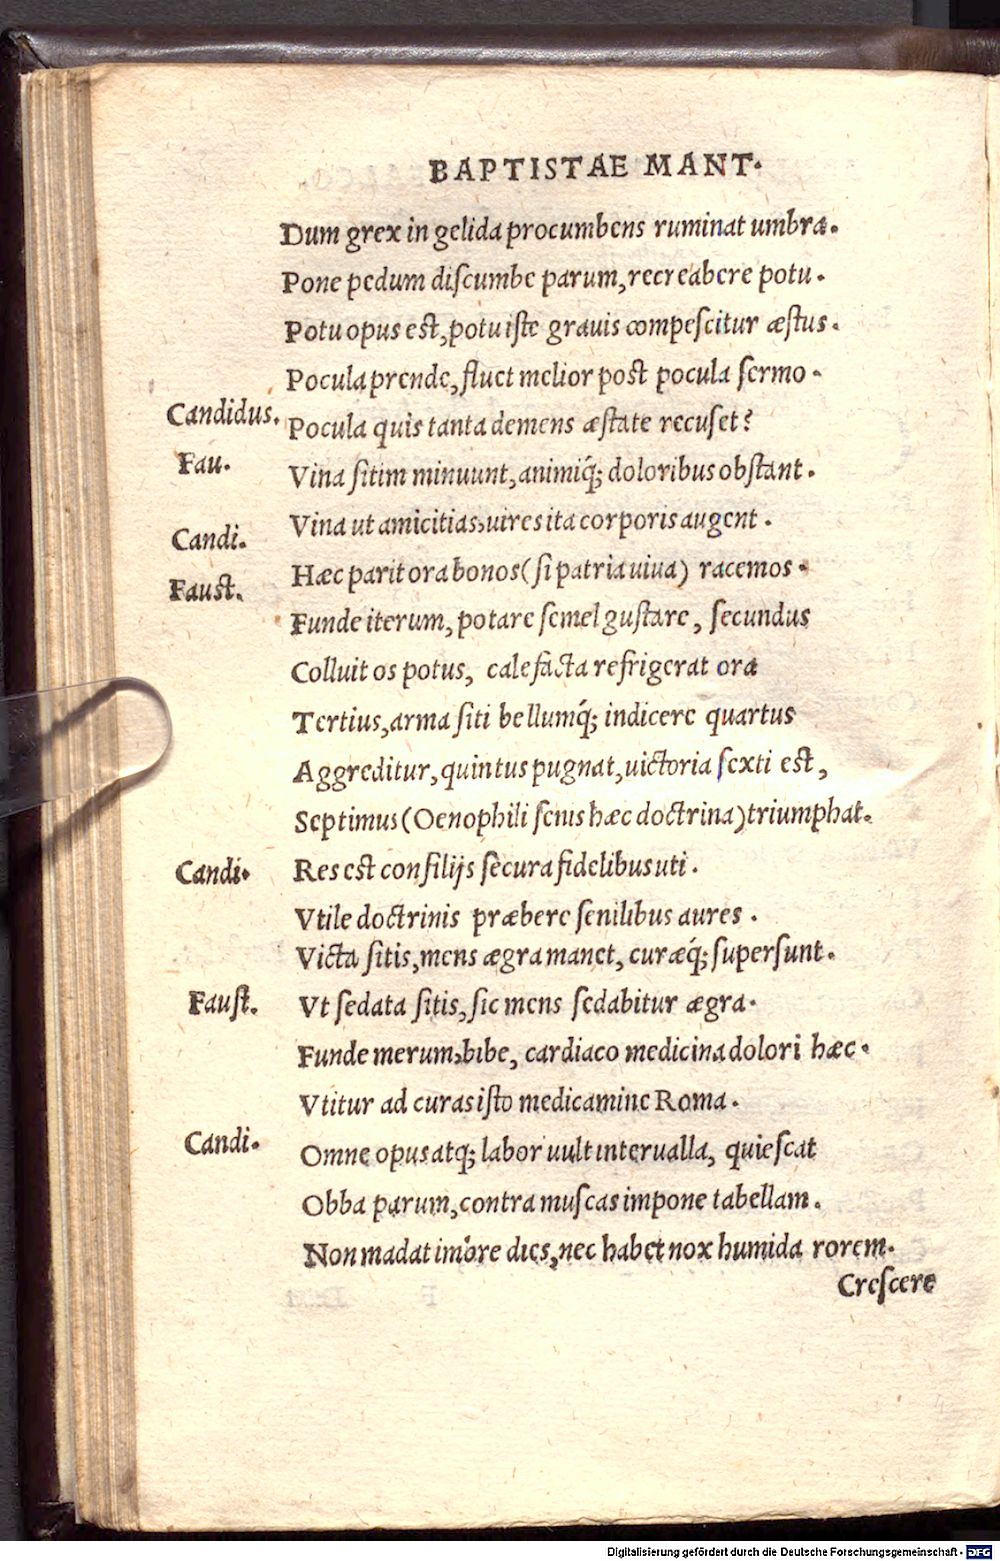 BAPTISTAE MANT.
Dum grex in gelida procumbens ruminat umbra.
Pone pedum diſcumbe parum, recreabere potu.
Potu opus eſt, potu iſte grauis compeſcitur æſtus.
Pocula prende, fluet melior poſt pocula ſermo.
Candidus. Pocula quis tanta demens æſtate recuſet?
Fau. Vina ſitim minuunt, animiq́; doloribus obſtant.
Vina ut amicitias, uires ita corporis augent.
Candi. Hæc parit ora bonos (ſi patria uiua) racemos.
Fauſt. Funde iterum, potare ſemel guſtare, ſecundus
Colluit os potus, calefacta refrigerat ora
Tertius, arma ſiti bellumq́; indicere quartus
Aggreditur, quintus pugnat, uictoria ſexti eſt,
Septimus (Oenophili ſenis hæc doctrina) triumphat.
Candi. Res eſt conſilijs ſecura fidelibus uti.
Vtile doctrinis præbere ſenilibus aures.
Victa ſitis, mens ægra manet, curæq́; ſuperſunt.
Fauſt. Vt ſedata ſitis, ſic mens ſedabitur ægra.
Funde merum, bibe, cardiaco medicina dolori hæc.
Vtitur ad curas iſto medicamine Roma.
Candi. Omne opus atq; labor uult interualla, quieſcat
Obba parum, contra muſcas impone tabellam.
Non madat imbre dies, nec habet nox humida rorem.
Creſcere
Digitalisierung gefördert durch die Deutsche Forschungsgemeinschaft - DFG